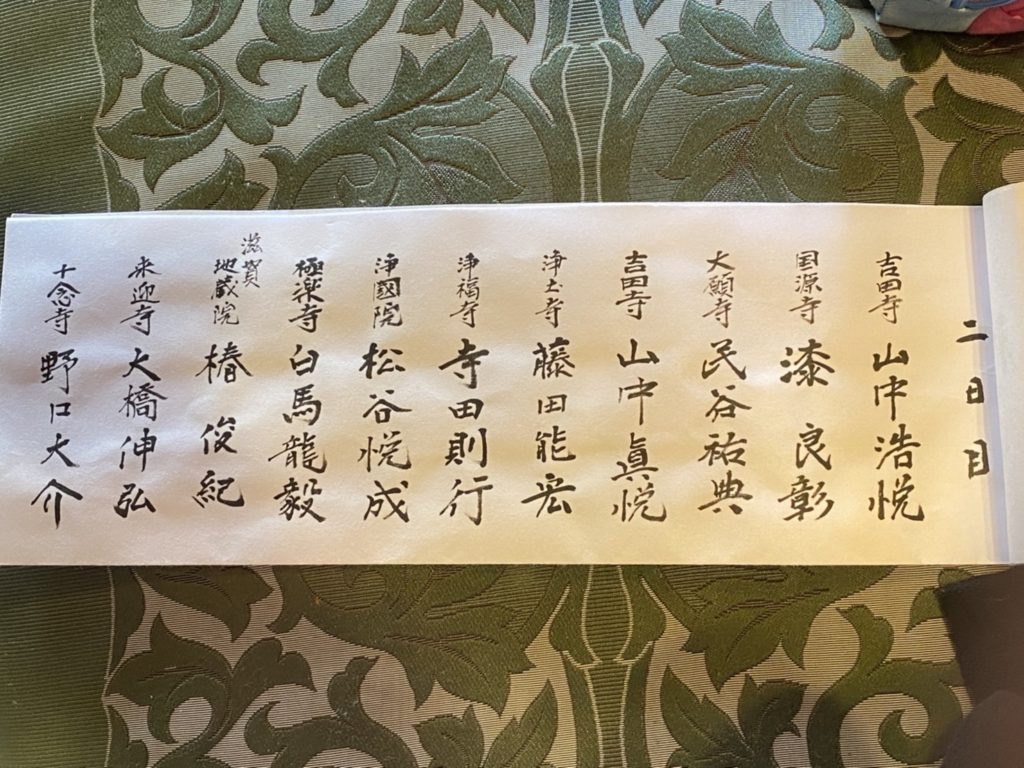 二日目
吉田寺 山中浩悦
国源寺 漆 良彰
大願寺 民谷祐典
吉田寺 山中眞悦
浄土寺 藤田能宏
浄福寺 寺田則行
浄國院 松谷悦成
極楽寺 白馬龍毅
滋賀 地蔵院 椿 俊紀
来迎寺 大橋伸弘
十念寺 野口大介